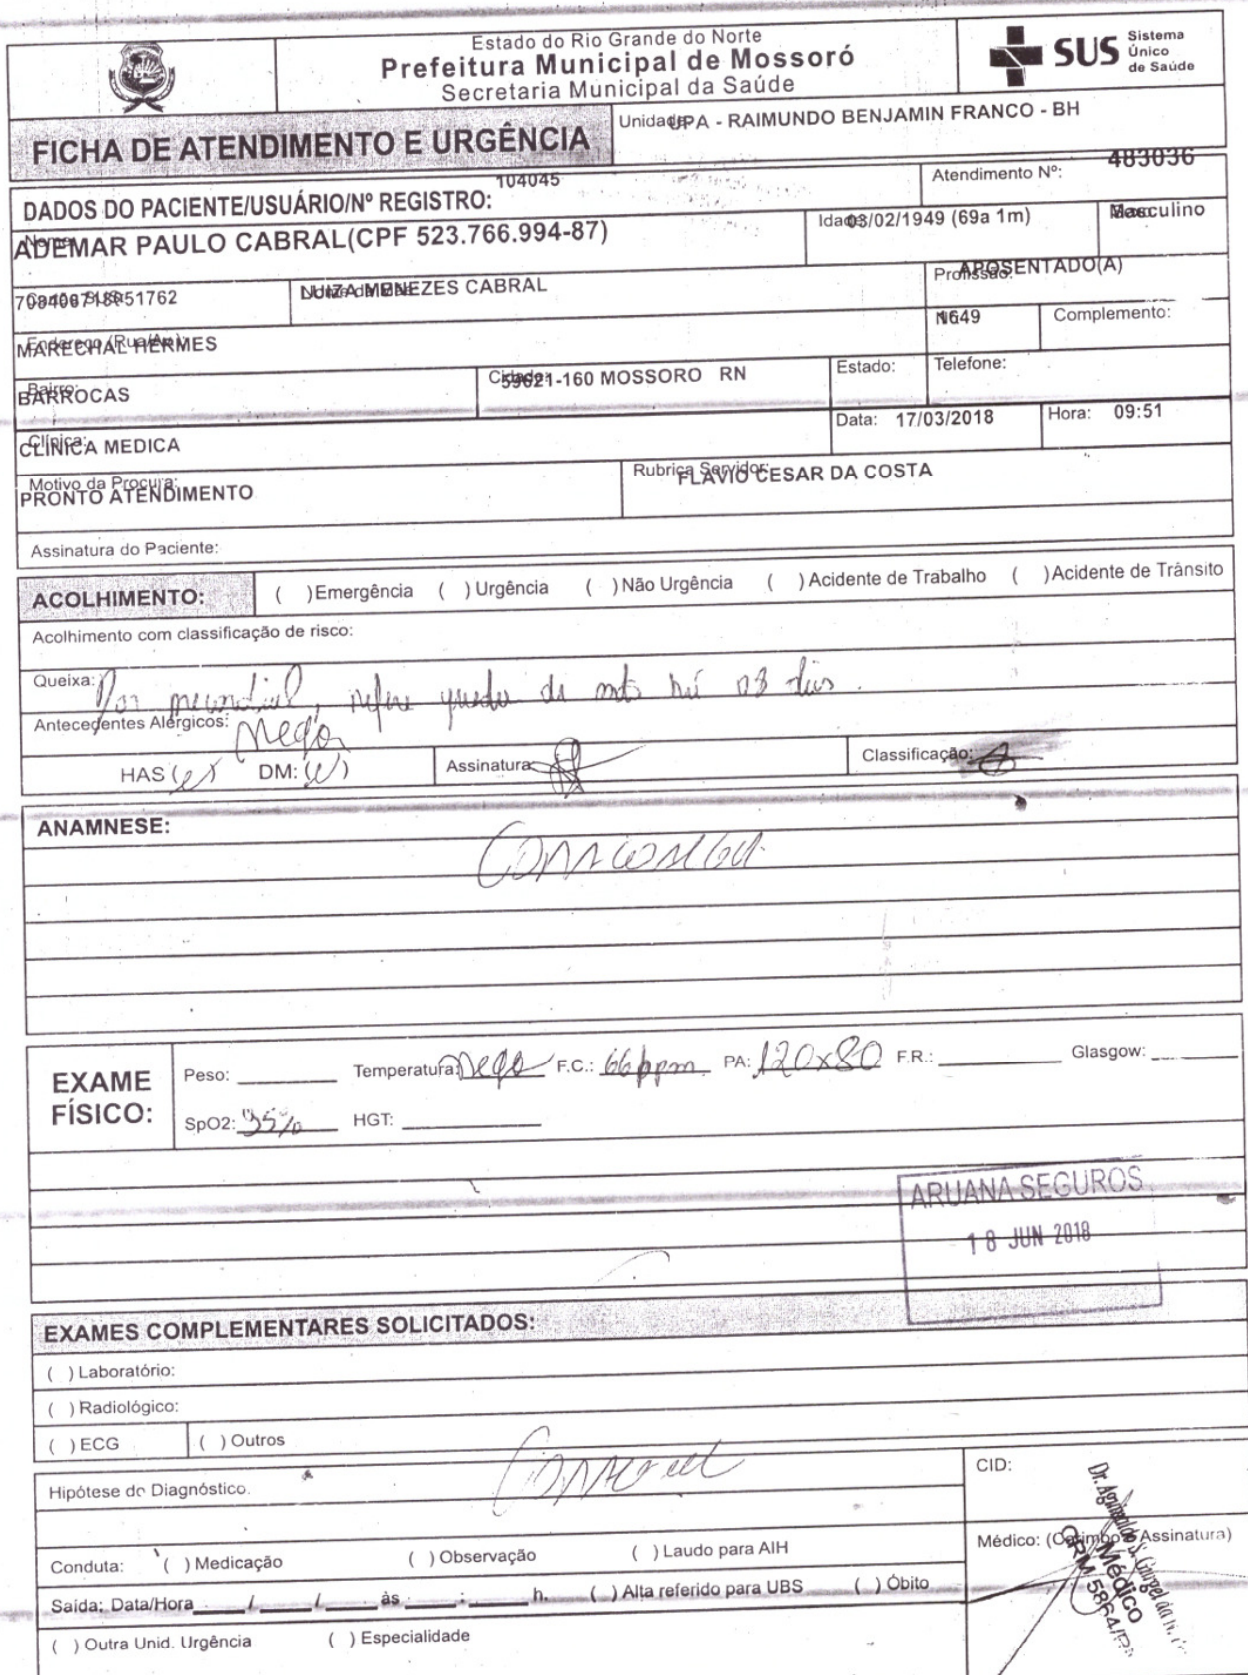 Estado do Rio Grande do Norte
Prefeitura Municipal de Mossoró
Secretaria Municipal da Saúde
SUS Sistema Único de Saúde
FICHA DE ATENDIMENTO E URGÊNCIA
Unidade: UPA - RAIMUNDO BENJAMIN FRANCO - BH
DADOS DO PACIENTE/USUÁRIO/Nº REGISTRO: 104045
Atendimento Nº: 483036
Nome: ADEMAR PAULO CABRAL(CPF 523.766.994-87)
Idade: 03/02/1949 (69a 1m)
Masculino
51762
LUIZA MENEZES CABRAL
Profissão: APOSENTADO(A)
Endereço (Rua/Av.): MARECHAL HERMES
1649
Complemento:
Bairro: BARROCAS
Cidade: 59621-160 MOSSORO RN
Estado:
Telefone:
Clínica: CLINICA MEDICA
Data: 17/03/2018
Hora: 09:51
Motivo da Procura: PRONTO ATENDIMENTO
Rubrica Servidor: FLAVIO CESAR DA COSTA
Assinatura do Paciente:
ACOLHIMENTO: ( )Emergência ( )Urgência ( )Não Urgência ( )Acidente de Trabalho ( )Acidente de Trânsito
Acolhimento com classificação de risco:
Queixa: Dor refere queda de moto há 03 dias.
Antecedentes Alérgicos:
HAS DM:
Assinatura:
Classificação:
ANAMNESE:
EXAME FÍSICO:
Peso: Temperatura: F.C.: 66bpm PA: 120x80 F.R.: Glasgow:
SpO2: 95% HGT:
ARUANA SEGUROS
18 JUN 2018
EXAMES COMPLEMENTARES SOLICITADOS:
( ) Laboratório:
( ) Radiológico:
( ) ECG ( ) Outros
Hipótese do Diagnóstico.
CID:
Conduta: ( ) Medicação ( ) Observação ( ) Laudo para AIH
Médico: (Carimbo e Assinatura)
Dr. Gurgel
Médico
CRM 5864/
Saída: Data/Hora / / às : h. ( ) Alta referido para UBS ( ) Óbito
( ) Outra Unid. Urgência ( ) Especialidade